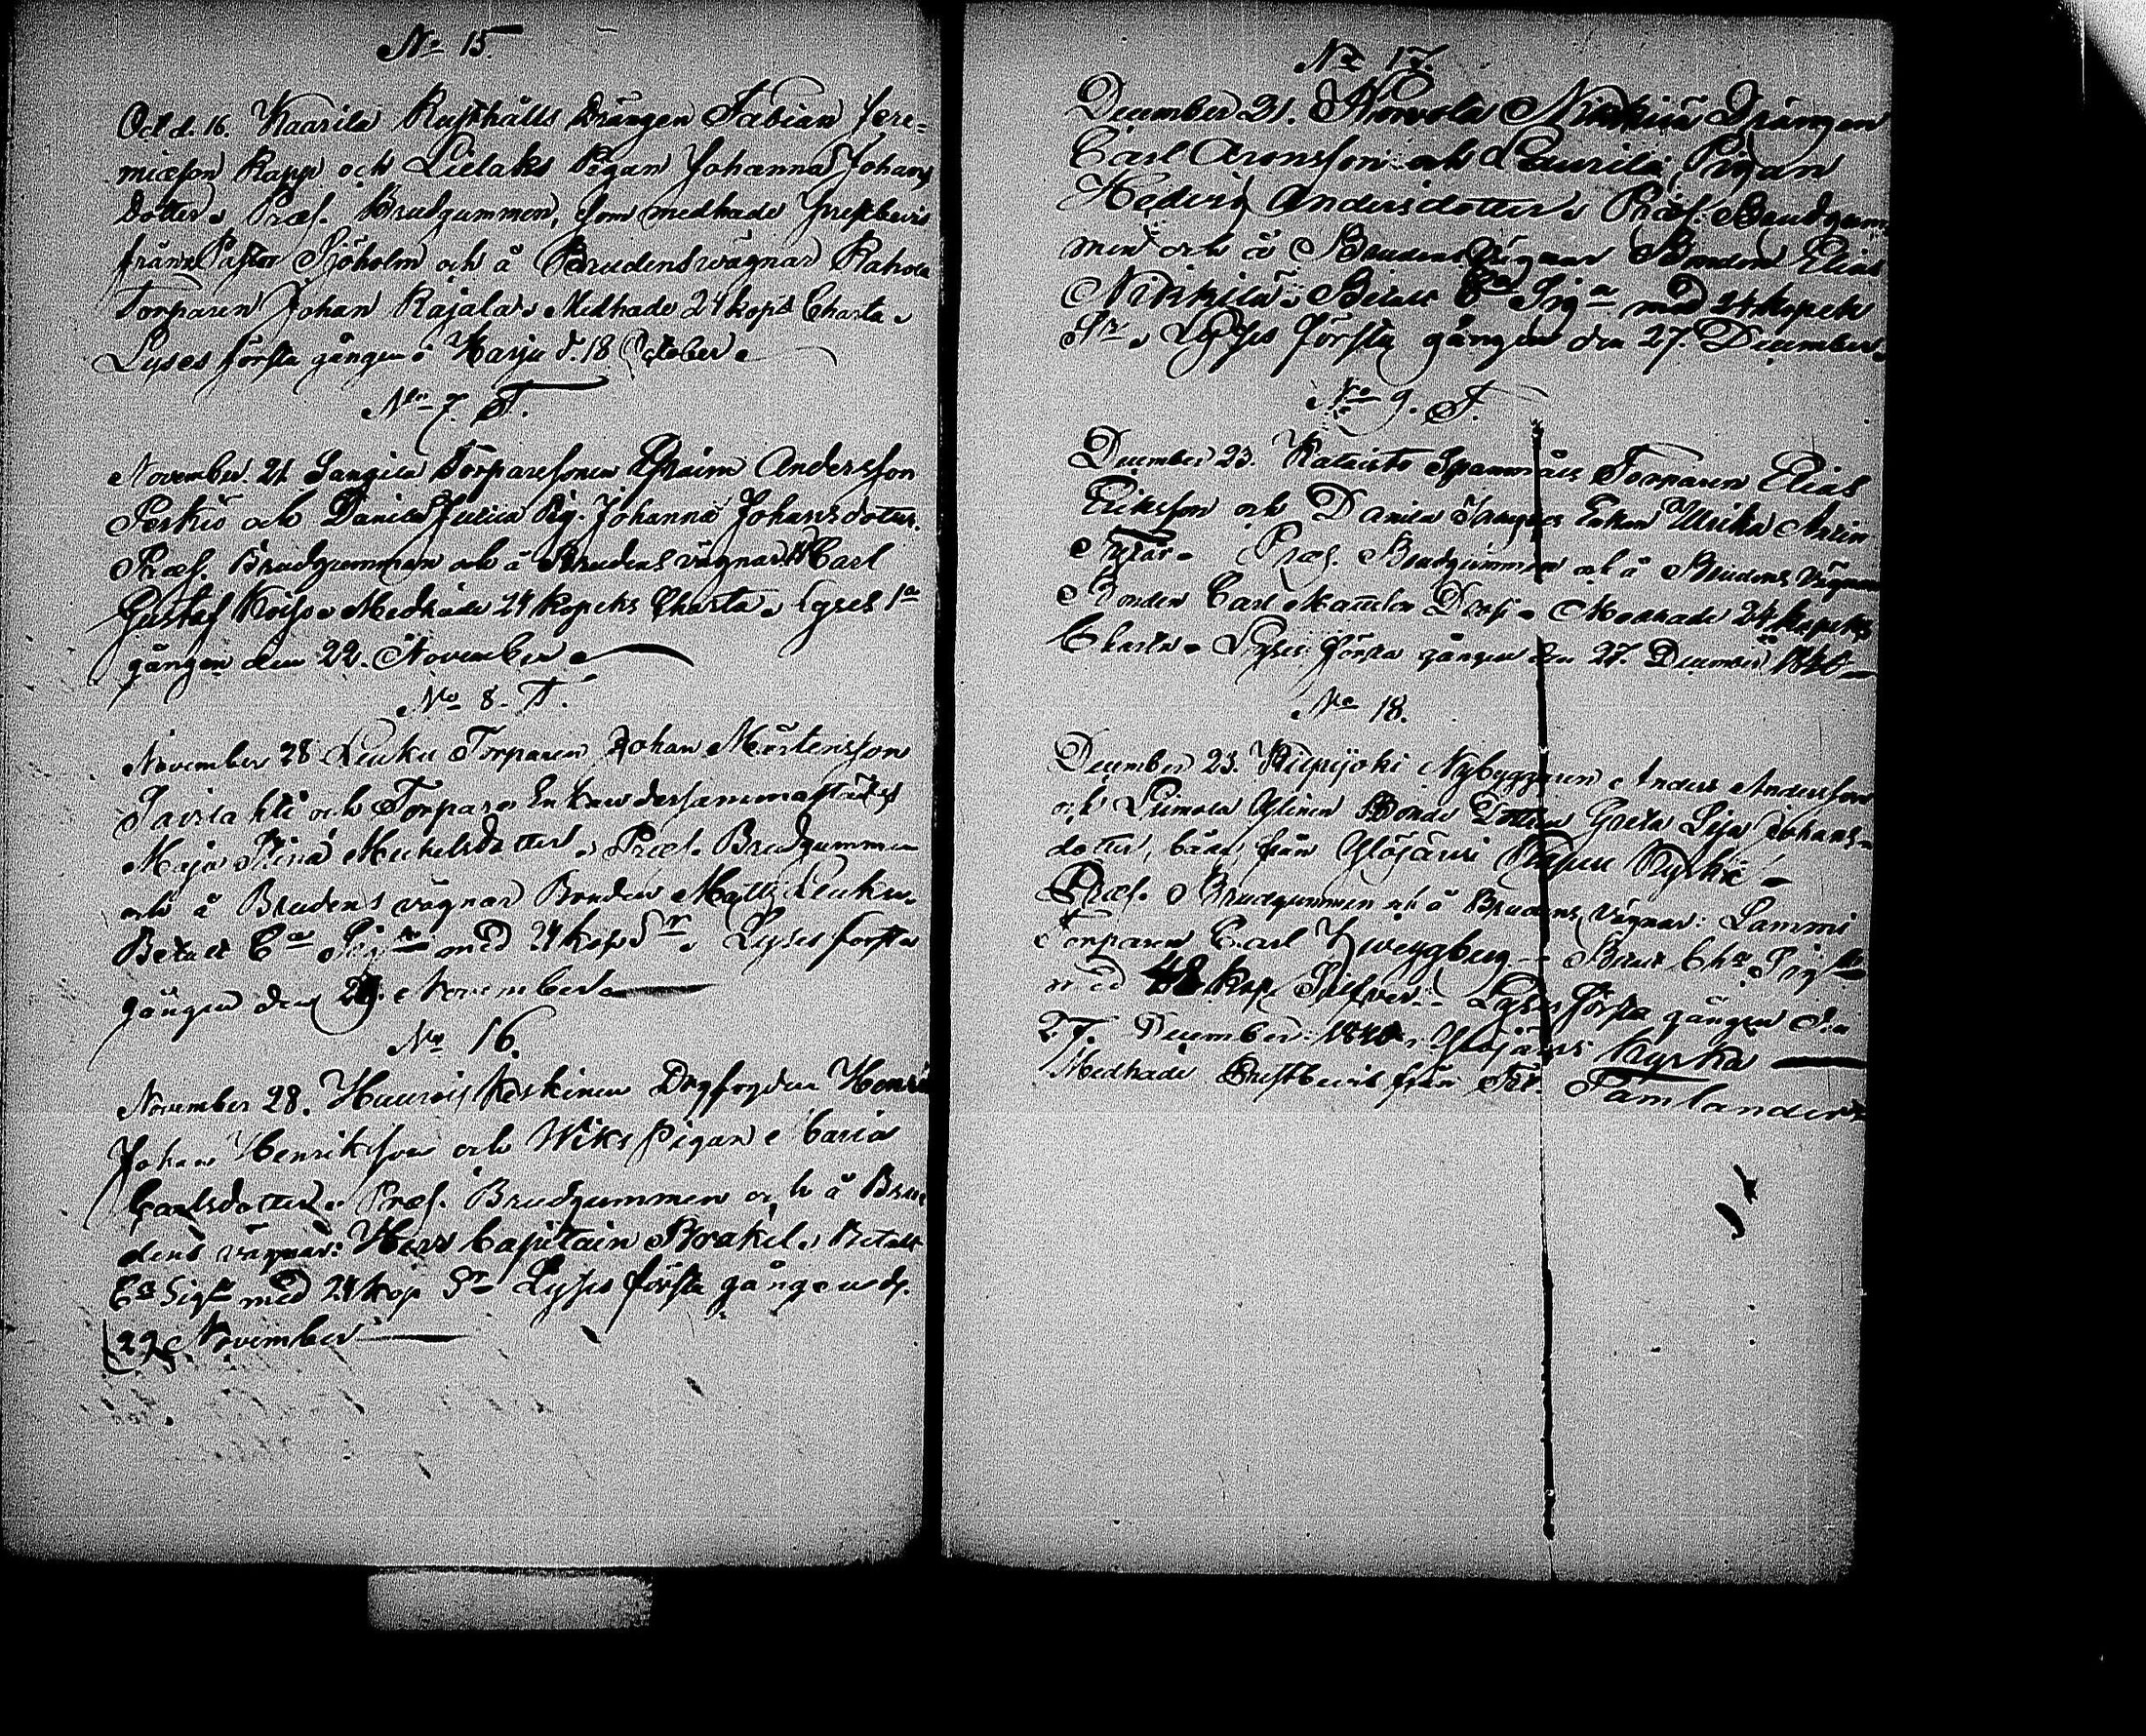 No 15.
Oct d. 16. Kaarila Rusthålls Drängen Fabian Jere=
miæson Rapp och Lielaks Pigan Johanna Johans
dotter. Præs. Brudgummen, som medhade Prestbevis
från Pastor Sjöholm och å Brudens vägnar Rahola
Torparen Johan Rajala. Medhade 24 kops Charta.
Lyses första gången i Harju d. 18 October.
No 7. T.
November. 21. Torparesonen Ephraim Andersson
Perkiö och Danila Pig. Johanna Johansdotter.
Præs. Brudgummen och å Brudens vägnar Carl
Gustaf. Medhade 24 kopeks Charta. Lyses 1a
gången den 22. November.
No 8. T.
November 28 Leuku Torparen Johan Mårtensson
och Torpare Enkan dersammastädes
Maja Stina Michelsdotter. Præs. Brudgummen
och å Brudens vägnar Bonden Matts Leuku.
Betalt Ca Sigta med 24 kops Sr. Lyses första
gången den 29. November.
No 16.
November 28. Keskinen Henric
Johan Henriksson och Wiks Pigan Caria
Carlsdotter. Præs. Brudgummen och å Bru
dens vägnar: Herr Capitain Brakel. Betalt
Ca Sigta med 24 kop Sr Lyses första gången d.
29 November
No 17.
December 21. Nikkilä Drängen
Carl Aronsson och Laurila Pigan
Hedvig Andersdotter. Præs. Brudgum
men och å Brudens vägnar Bonden Elias
Nikkilä. Betalt Ca Sigta med 24 kopeks
Sr. Lyses första gången den 27. December.
No 9. T.
December 23. Torparen Elias
Eriksson och Danila Enkan Ulrika
Præs. Brudgummen och å Brudens vägnar
Bonden Carl. Medhade 24 kopeks
Charta. Lyses första gången den 27. December 1840
No 18.
December 23. Nybyggaren Anders Andersson
och Bonde Dottren Greta Lisa Johans=
dotter, båda från Ylöjärvi Kyrkio.
Præs. Brudgummen och å Brudens vägnar: Lammi
Torparen Carl. Betalt Cha Sigta
med 48 kop Silfver. Lyses första gången den
27. December 1840 i Ylöjärvi Kyrka
Medhade Prestbevis från Tamlander